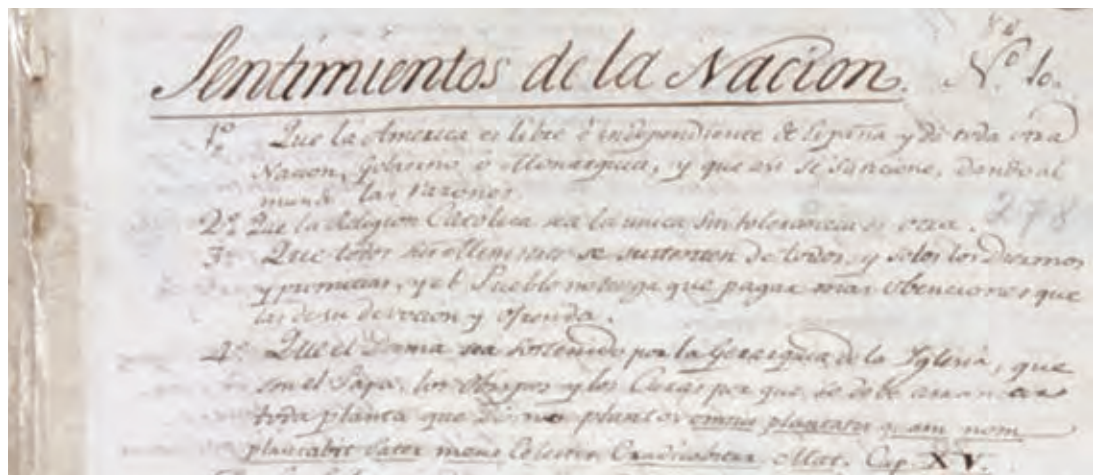 Sentimientos de la Nacion. N.º 10.
1.º Que la America es libre é independiente de España y de toda otra
Nacion, Gobierno o Monarquia, y que asi se sancione, dando al
mundo las razones.
278
2.º Que la Religion Catolica sea la unica, sin tolerancia de otra.
3.º Que todos sus Ministros se sustenten de todos, y solos los Diezmos
y primicias, y el Pueblo no tenga que pagar mas obenciones que
las de su devocion y ofrenda.
4.º Que el Dogma sea sostenido por la Gerarquia de la Yglesia, que
son el Papa, los Obispos y los Curas por que se debe arrancar
toda planta que Dios no plantó: omnis plantatio quam nom
plantabit Pater meus Celestis Cradicabitur. Mat. Cap. XV.